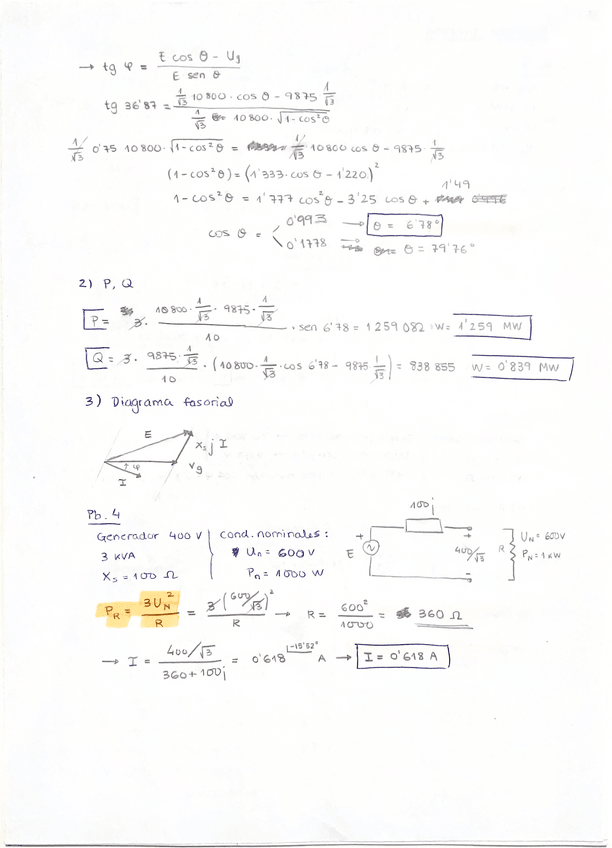 → tg φ = (E cos θ - Ug) / (E sen θ)
tg 36'87 = (1/√3 10 800 · cos θ - 9875 1/√3) / (1/√3 10 800 · √(1-cos²θ))
1/√3 0'75 10 800 · √(1-cos²θ) = 1/√3 10 800 cos θ - 9875 · 1/√3
(1-cos²θ) = (1'333 · cos θ - 1'220)²
1-cos²θ = 1'777 cos²θ - 3'25 cos θ + 1'49
cos θ = 0'993 → θ = 6'78°
0'1778 → θ = 79'76°
2) P, Q
P = 3 · (10 800 · 1/√3 · 9875 · 1/√3) / 10 · sen 6'78 = 1 259 082 W = 1'259 MW
Q = 3 · (9875 · 1/√3) / 10 · (10 800 · 1/√3 · cos 6'78 - 9875 1/√3) = 838 855 W = 0'839 MW
3) Diagrama fasorial
E
Xs j I
φ
I
Vg
Pb. 4
Generador 400 V
3 kVA
Xs = 100 Ω
cond. nominales:
Un = 600 V
Pn = 1000 W
100 j
+
E
+
400/√3
-
R
UN = 600 V
PN = 1 kW
PR = 3UN² / R = 3 (600/√3)² / R → R = 600² / 1000 = 360 Ω
→ I = (400/√3) / (360 + 100j) = 0'618 ∟-15'52° A → I = 0'618 A